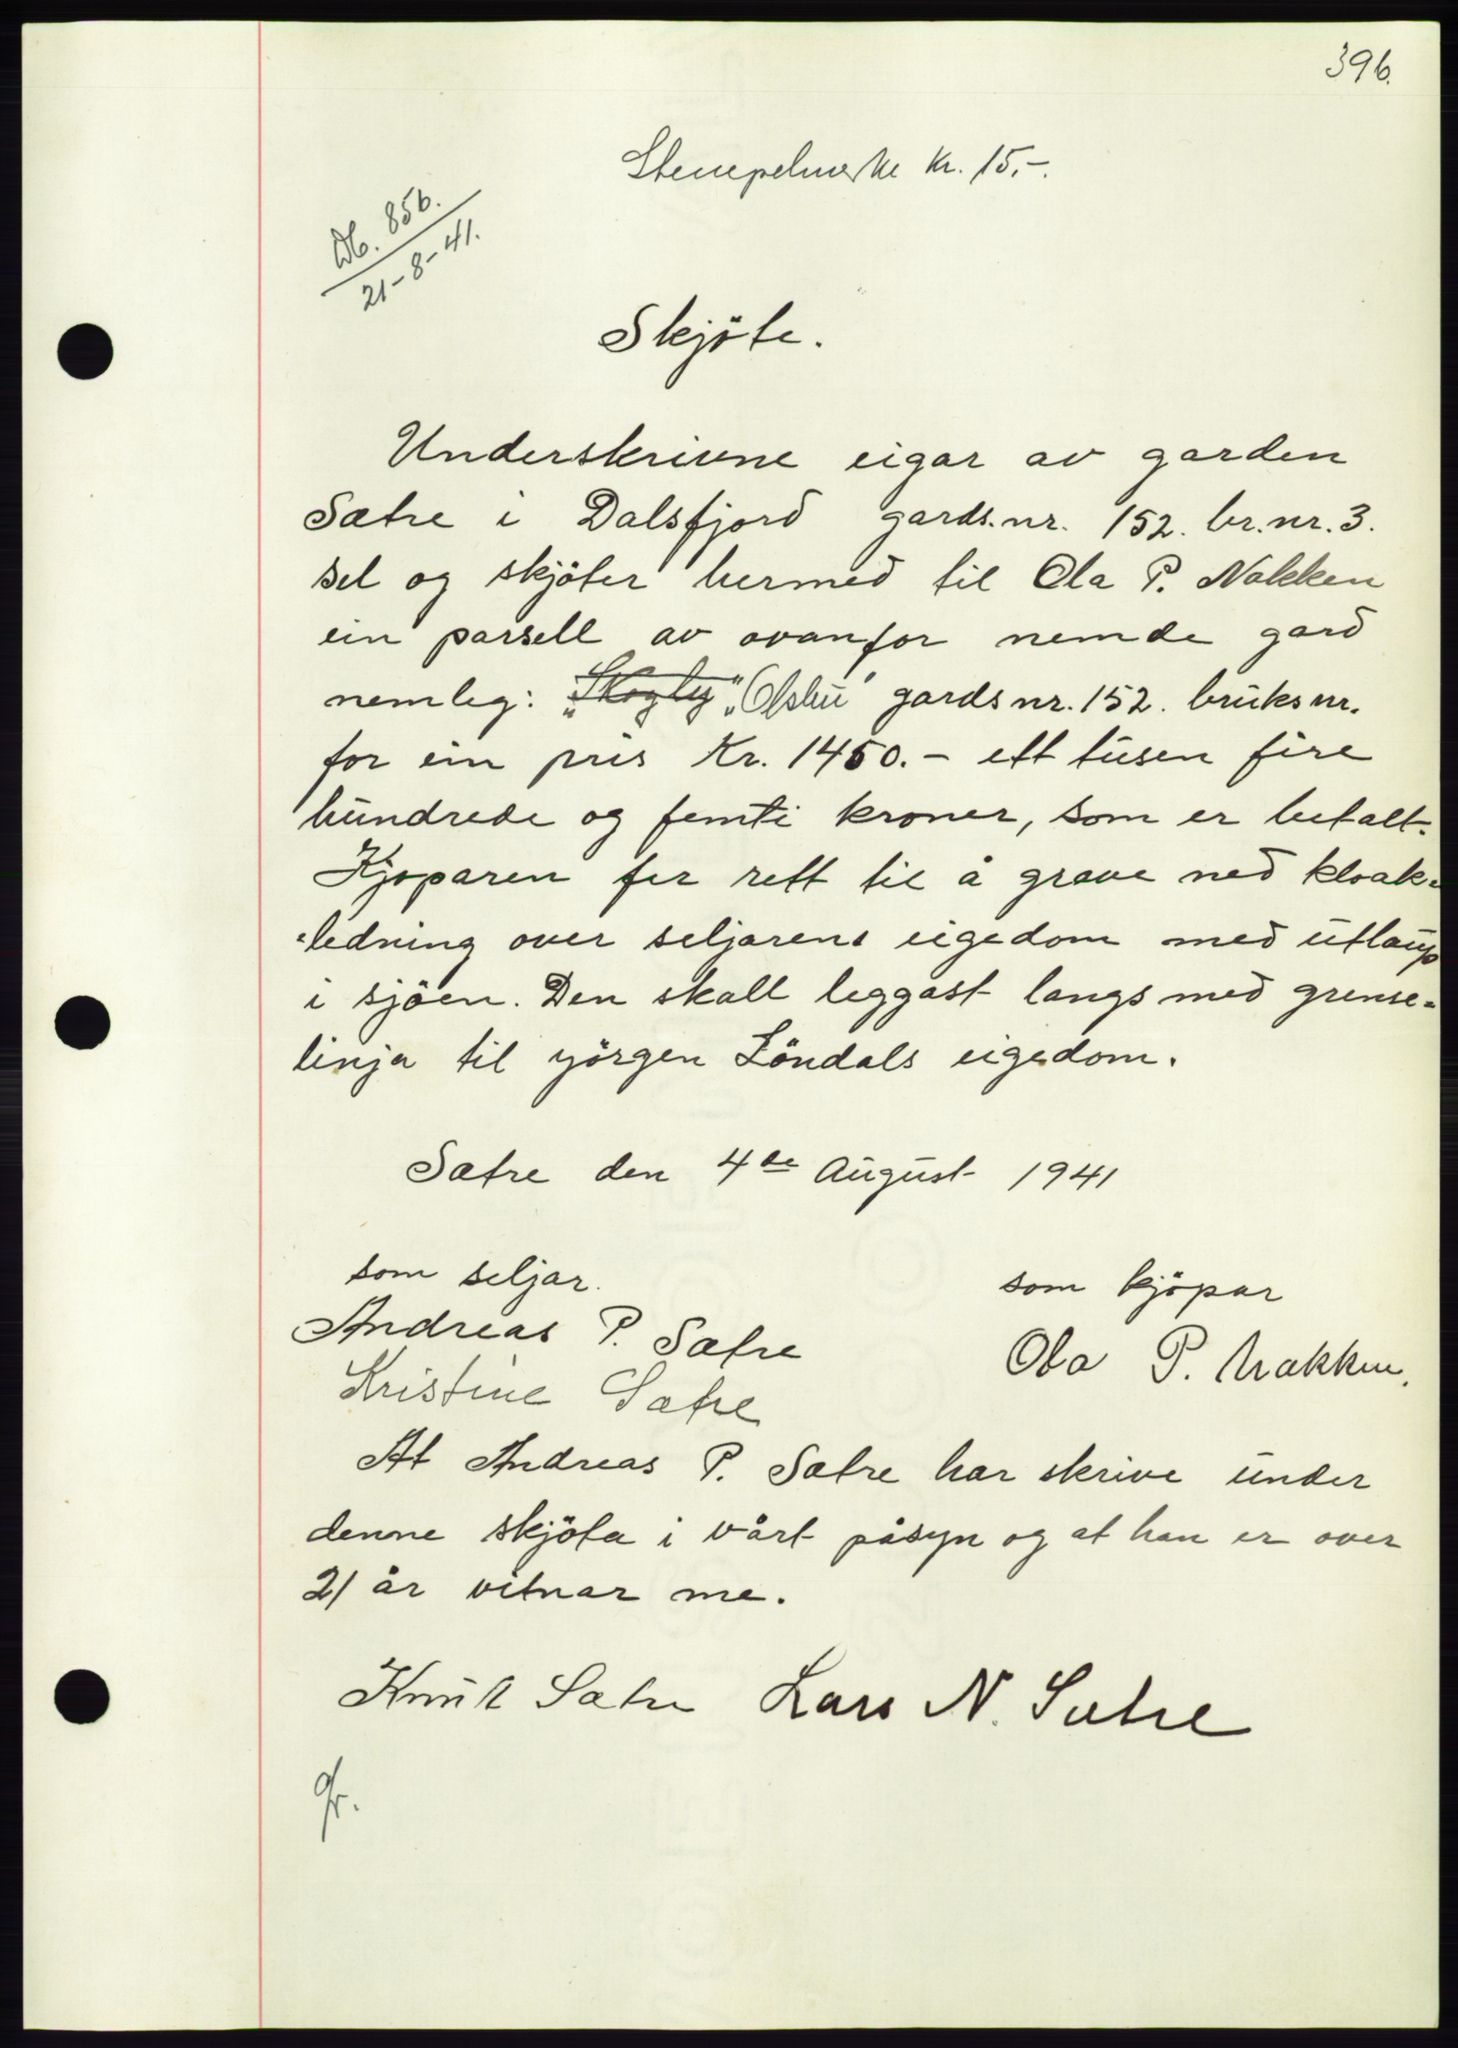 396.
Stempelmerke kr. 15,-.
Db. 856.
21-8-41.
Skjöte.
Underskrivne eigar av garden
Sætre i Dalsfjord gards.nr. 152. br.nr. 3.
sel og skjöter hermed til Ola P. Nakken
ein parsell av ovanfor nemde gard
nemleg: „Skogly" „Olsbu" gardsnr. 152. bruksnr.
for ein pris Kr. 1450.- ett tusen fire
hundrede og femti kroner, som er betalt.
Kjøparen fer rett til å grave ned kloak-
-ledning over seljarens eigedom med utlaup
i sjöen. Den skall leggast langs med grense-
linja til Jörgen Löndals eigedom.
Sætre den 4de August 1941
som seljar.
som kjöpar
Andreas P. Sætre
Ola P. Nakken.
Kristine Sætre
At Andreas P. Sætre har skrive under
denne skjöta i vårt påsyn og at han er over
21 år vitnar me.
Knut Sætre Lars N. Sætre